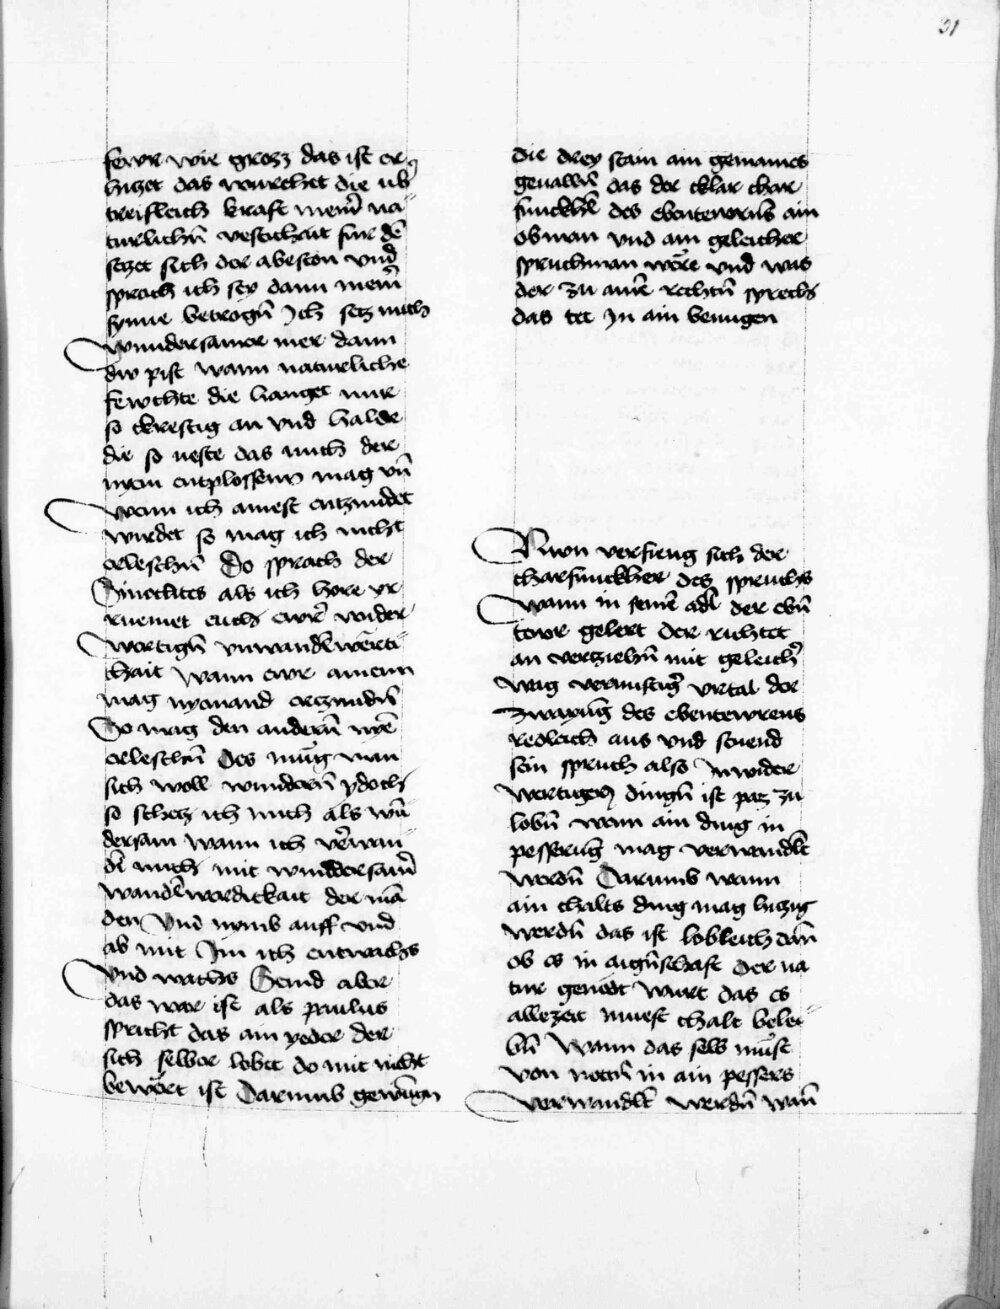 31
fewr wie grosz das ist er
hitzet das wurchet die üb͛
treifleich kraft mein͛ na¨
turlichn̄ vestichait für dē
setzet sich der abeston vnd
sprach ich sey dann mein͛
synne betrogn̄ Ich setz mich
wundersamer mer dann
dw pist wann naturliche
fewchte die hanget mir
so chreftig an vnd halde
die so veste das mich der
nyem entplossenn mag vn̄
wenn ich ainest entzundet
wirdet so mag ich nicht
erleschn̄ Do sprach der
als ich hore vr
ruemet euch ewr͛ wider
wortign̄ vnwandelwerti¨
chait wann ewr ainenn
mag nyemand erczundn̄
So mag den andern̄ nyē
erleschn̄ Des mug man
sich woll wundern̄ ydoch
so schetz ich mich als wū
dersam wann ich v͛wan¨
dl mich mit wundersam͛
wandelwerdickait der mā
den Vnd nymb auff vnd
ab mit Im ich entwachs
vnd wachs Seind aber
das war ist als paulus
spricht das ain yeder der
sich selber lobet do mit nicht
bewërt ist Darumb gewūgn
die drey stain ain gemaines
geuallen̄ das der chlar char
funckhel des ebentewrns ain
obman vnd ain geleicher
spruchman were vnd was
der zu ainē rechtn̄ sprechs
das tet In ain benugen
Nwn verfieng sich der
charfunckher des spruchs
wann in seinē adl der ebn̄
tewr gelert der richtet
an verziehn̄ mit geleich͛
wag vernuftig͛ vrtal der
zwayūg des ebentewrens
redleich aus vnd scheind
sein spruch also In wider
wertigen dingn̄ ist paz zu
lobn̄ wenn ain ding in
pesserūg mag verwandlt
werdn̄ Darumb wann
ain chalts ding mag hitzig
werdn̄ das ist lobleich dān
ob es in aign̄schaft der na
tur genödt wurt das es
allezeit muest chalt belei¨
bn̄ Wann das selb müst
von nottn̄ in ain pessers
verwandlt werdn̄ wān